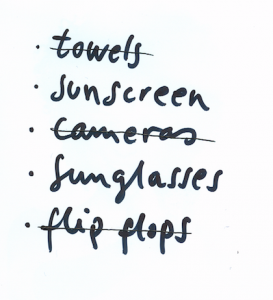 · towels
· sunscreen
· cameras
· sunglasses
· flip flops